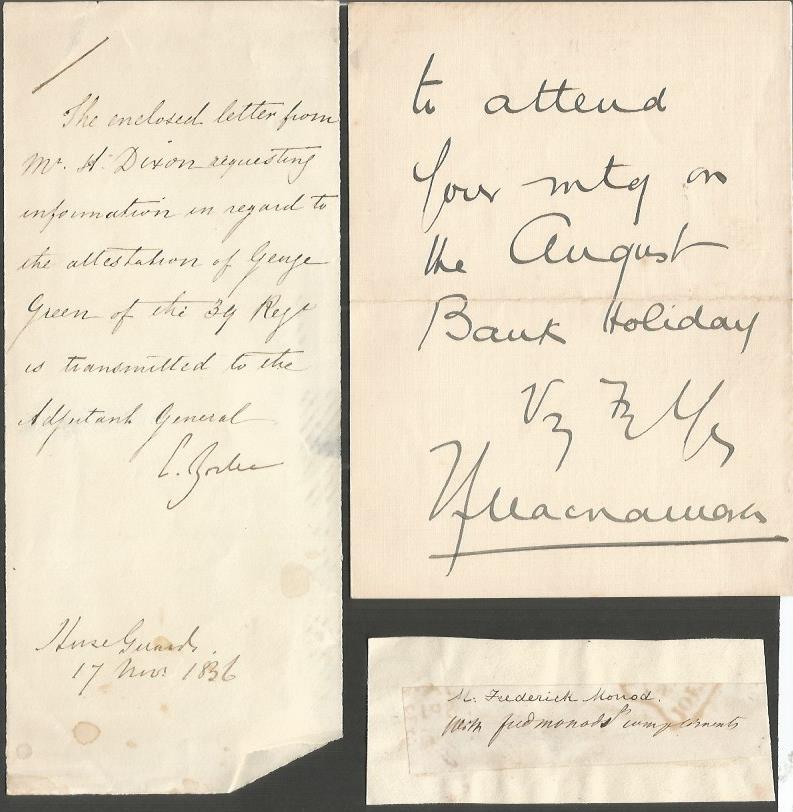 The enclosed letter from
Mr. H. Dixon requesting
information in regard to
the attestation of George
Green of the 39 Regt
is transmitted to the
Adjutant General
Horse Guards.
17 Novr. 1836
to attend
your mtg on
the August
Bank Holiday
Macnamara
M. Frederick Monod.
with fredmonods compliments